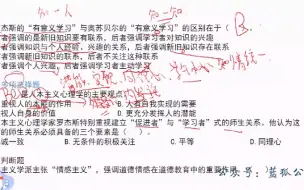 知一人 知一知
杰斯的“有意义学习”与奥苏贝尔的“有意义学习”的区别在于（ B.
者强调的是新旧知识要有联系，后者强调学习者对知识的兴趣
者强调知识与个人经验、兴趣的关系，后者强调新旧知识存在联系
者强调新旧知识的联系，后者不关注这种联系
者强调 后者强调学习者主动学
）是人本主义心理学的主要观点。
重视人的本 B. 大有自我实现的需要
视人自身的价值 D. 更充分发挥人的潜能
本主义心理学家罗杰斯特别重视建立“促进者”与“学习者”式的师生关系，他认为这
的师生关系必须具备的三个要素是（ ）。
诚一致 B. 无条件的积极关注 C. 平等 D. 同理心
判断题
主义学派主张“情感主义”，强调道德情感在道德教育中的重要作用
公众号：蓝狐公